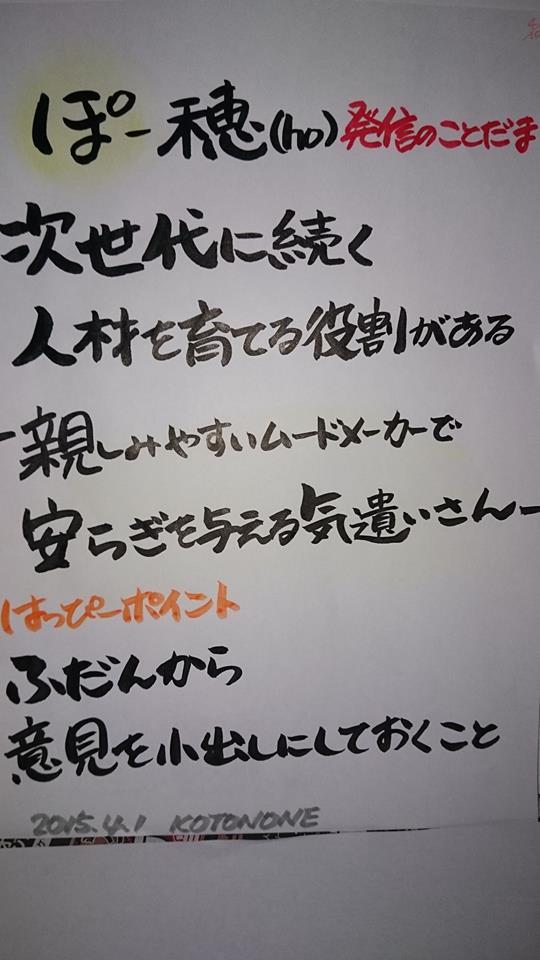 ぽー穂(ho)発信のことだま
次世代に続く
人材を育てる役割がある
ー親しみやすいムードメーカーで
安らぎを与える気遣いさんー
はっぴーポイント
ふだんから
意見を小出しにしておくこと
2015.4.1 KOTONONE